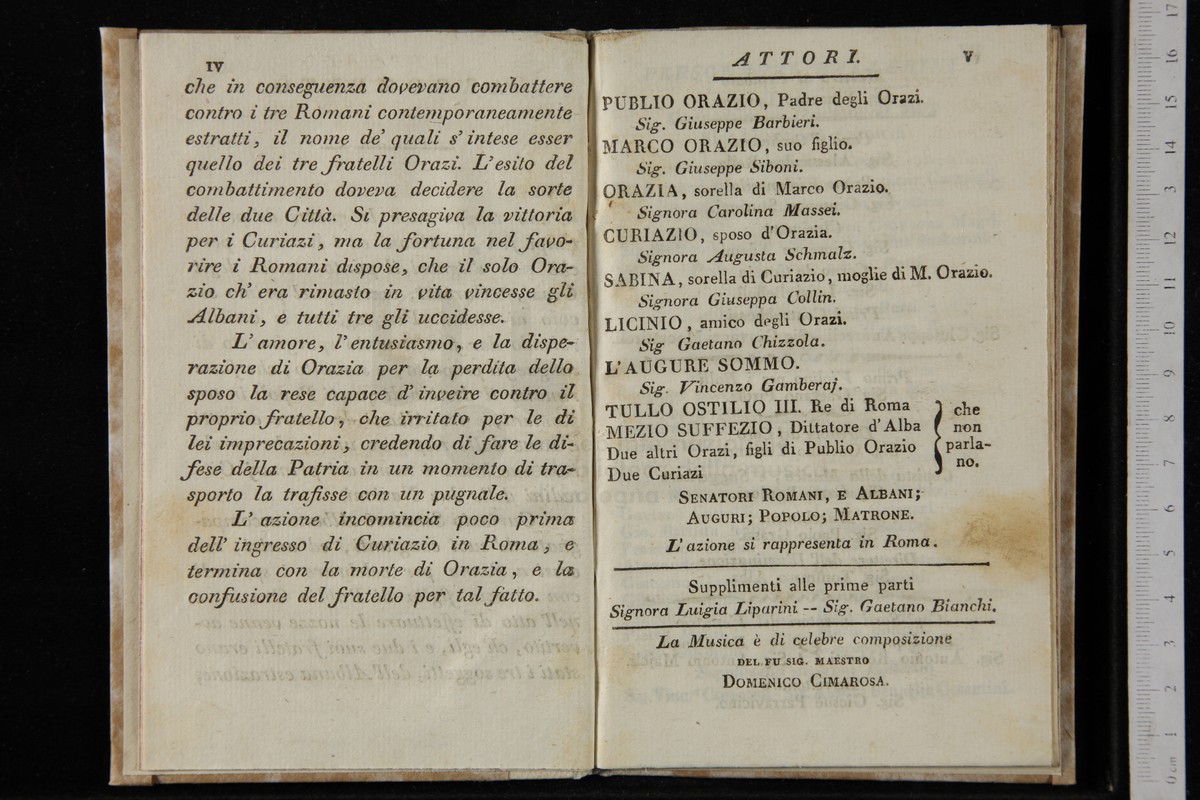 IV
che in conseguenza dovevano combattere
contro i tre Romani contemporaneamente
estratti, il nome de' quali s' intese esser
quello dei tre fratelli Orazi. L' esito del
combattimento doveva decidere la sorte
delle due Città. Si presagiva la vittoria
per i Curiazi, ma la fortuna nel favo-
rire i Romani dispose, che il solo Ora-
zio ch' era rimasto in vita vincesse gli
Albani, e tutti tre gli uccidesse.
L' amore, l' entusiasmo, e la dispe-
razione di Orazia per la perdita dello
sposo la rese capace d' inveire contro il
proprio fratello, che irritato per le di
lei imprecazioni, credendo di fare le di-
fese della Patria in un momento di tra-
sporto la trafisse con un pugnale.
L' azione incomincia poco prima
dell' ingresso di Curiazio in Roma, e
termina con la morte di Orazia, e la
confusione del fratello per tal fatto.
ATTORI. V
PUBLIO ORAZIO, Padre degli Orazi.
Sig. Giuseppe Barbieri.
MARCO ORAZIO, suo figlio.
Sig. Giuseppe Siboni.
ORAZIA, sorella di Marco Orazio.
Signora Carolina Massei.
CURIAZIO, sposo d'Orazia.
Signora Augusta Schmalz.
SABINA, sorella di Curiazio, moglie di M. Orazio.
Signora Giuseppa Collin.
LICINIO, amico degli Orazi.
Sig Gaetano Chizzola.
L'AUGURE SOMMO.
Sig. Vincenzo Gamberaj.
TULLO OSTILIO III. Re di Roma
MEZIO SUFFEZIO, Dittatore d'Alba
Due altri Orazi, figli di Publio Orazio
Due Curiazi
che
non
parla-
no.
SENATORI ROMANI, E ALBANI;
AUGURI; POPOLO; MATRONE.
L' azione si rappresenta in Roma.
Supplimenti alle prime parti
Signora Luigia Liparini -- Sig. Gaetano Bianchi.
La Musica è di celebre composizione
DEL FU SIG. MAESTRO
DOMENICO CIMAROSA.
17
16
15
14
13
12
11
10
9
8
7
6
5
4
3
2
1
0 cm